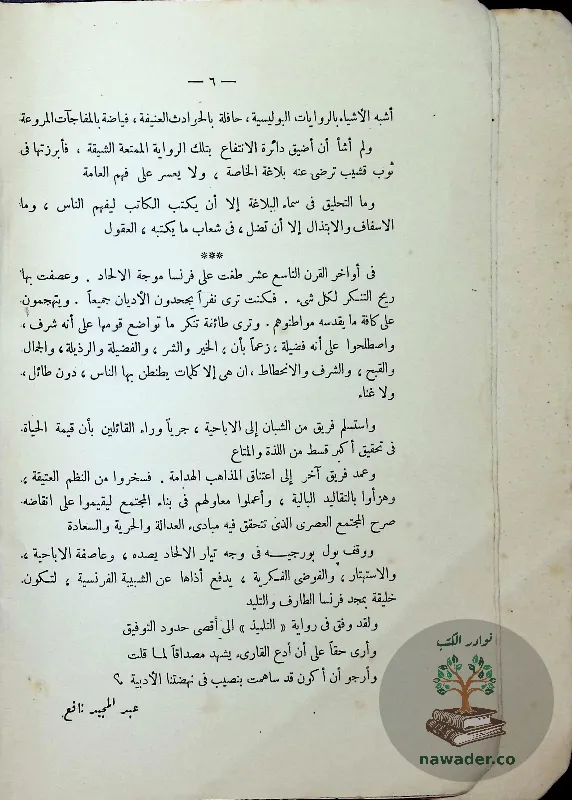 — ٦ —
أشبه الأشياء بالروايات البوليسية ، حافلة بالحوادث العنيفة ، فياضة بالمفاجآت المروعة
ولم أشأ أن أضيق دائرة الانتفاع بتلك الرواية الممتعة الشيقة ، فأبرزتها فى
ثوب قشيب ترضى عنه بلاغة الخاصة ، ولا يعسر على فهم العامة
وما التحليق فى سماء البلاغة إلا أن يكتب الكاتب ليفهم الناس ، وما
الاسفاف والابتذال إلا أن تضل ، فى شعاب ما يكتبه ، العقول
***
فى أواخر القرن التاسع عشر طغت على فرنسا موجة الالحاد . وعصفت بها
ريح التنكر لكل شىء . فكنت ترى نفراً يجحدون الأديان جميعاً . ويتهجمون
على كافة ما يقدسه مواطنوهم . وترى طائفة تنكر ما تواضع قومها على أنه شرف ،
واصطلحوا على أنه فضيلة ، زعماً بأن ، الخير والشر ، والفضيلة والرذيلة ، والجمال
والقبح ، والشرف والانحطاط ، ان هى إلا كلمات يطنطن بها الناس ، دون طائل ،
ولا غناء
واستسلم فريق من الشبان إلى الاباحية ، جرياً وراء القائلين بأن قيمة الحياة
فى تحقيق أكبر قسط من اللذة والمتاع
وعمد فريق آخر إلى اعتناق المذاهب الهدامة . فسخروا من النظم العتيقة ،
وهزأوا بالتقاليد البالية ، وأعملوا معاولهم فى بناء المجتمع ليقيموا على انقاضه
صرح المجتمع العصرى الذى تتحقق فيه مبادىء العدالة والحرية والسعادة
ووقف پول بورجيه فى وجه تيار الالحاد يصده ، وعاصفة الاباحية ،
والاستهتار ، والفوضى الفكرية ، يدفع أذاها عن الشبيبة الفرنسية ، لتكون
خليقة بمجد فرنسا الطارف والتليد
ولقد وفق فى رواية « التلميذ » الى أقصى حدود التوفيق
وأرى حقاً على أن أدع القارىء يشهد مصداقاً لما قلت
وأرجو أن أكون قد ساهمت بنصيب فى نهضتنا الأدبية ؟
عبد المجيد نافع
نوادر الكتب
nawader.co